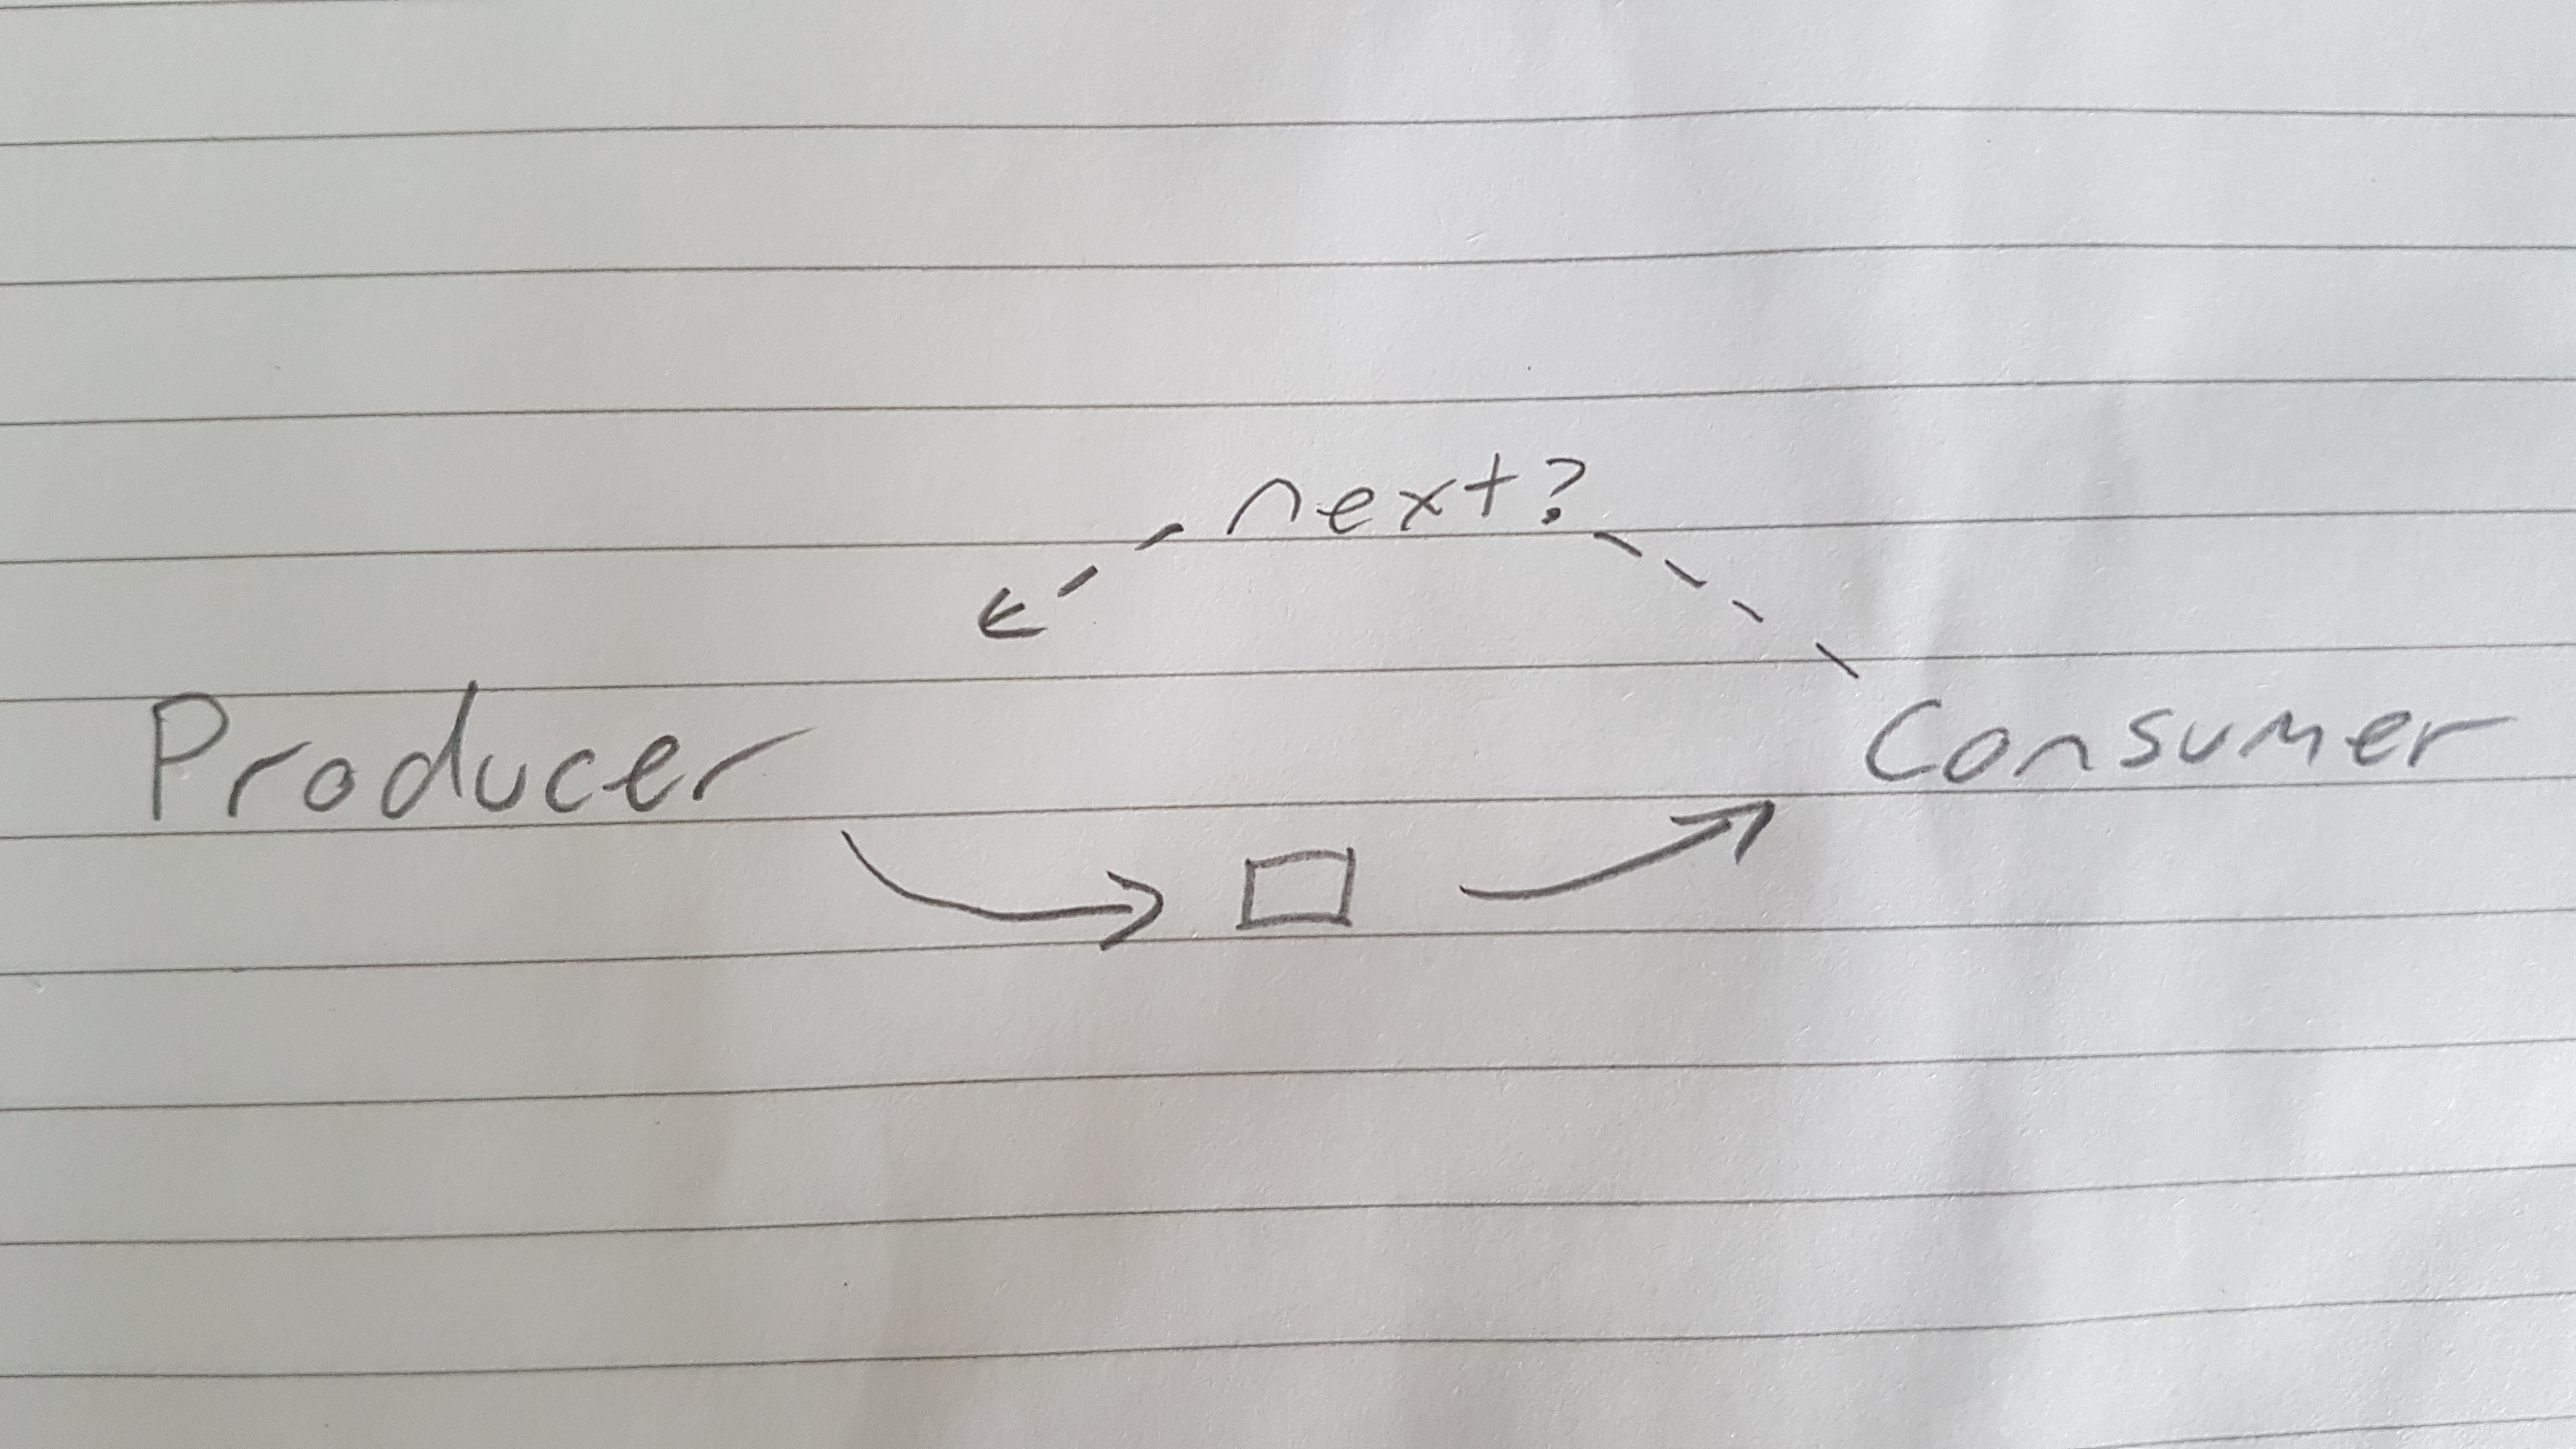 next?
Producer
Consumer